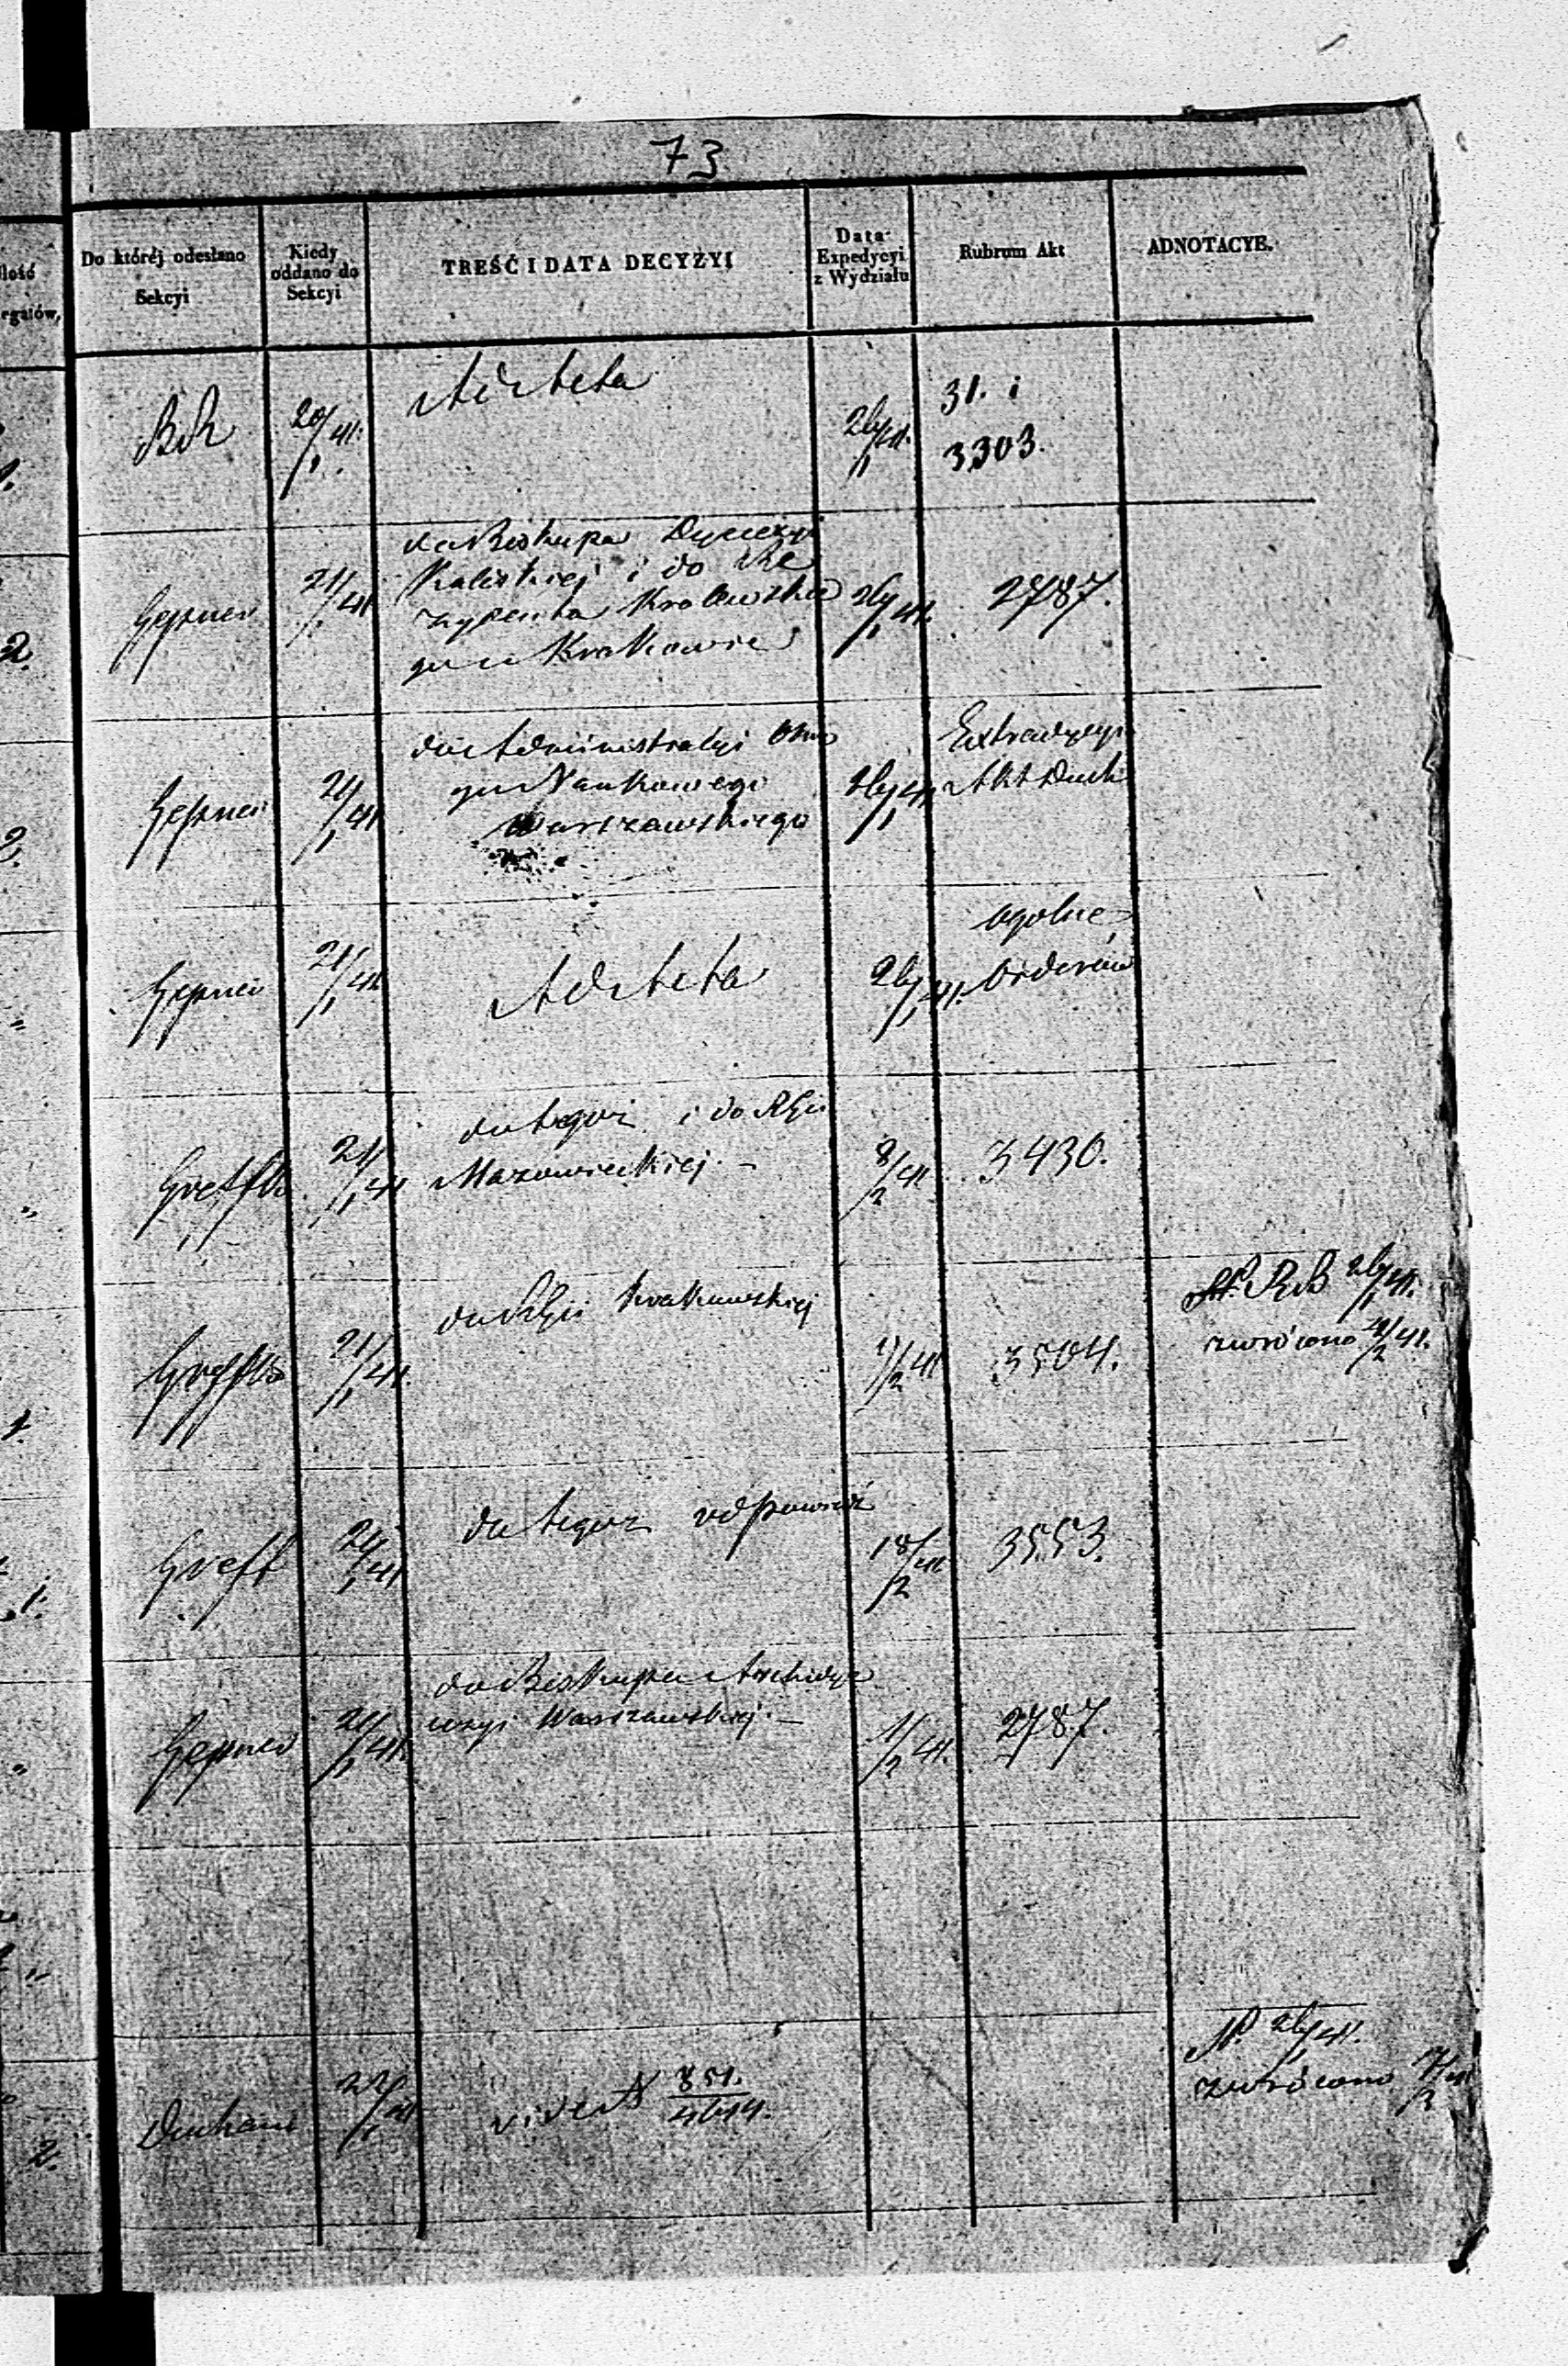 73
Ilość
Do któréj odesłano
Sekcyi
Kiedy
oddano do
Sekcyi
TREŚĆ I DATA DECYZYI
Data
Expedycyi
z Wydziału
Rubrum Akt
ADNOTACYE.
Ad Acta
20/1 41.
26/1 41.
31. i
3303.
2.
Geppner
21/1 41
do Biskupa Dyecezyi
Kaliskiej i do Re
zydenta Krolewskie
go w Krakowie
26/1 41.
2787.
2.
Geppner
21/1 41
do Administratyi Okrę
gu Naukowego
Warszawskiego
26/1 41
Extradycyi
Akt Duch
Geppner
21/1 41
Ad Acta
26/1 41.
Ogolne
Orderów
21/1 41
do tegoż i do RGu
Mazowieckiej. –
8/2 41
3430.
21/1 41.
do RGu Krakowskiej
1/2 41
3504.
26/1 41.
zwrócono 4/2 41.
1.
Greff
21/1 41
do tegoż odpowiedź
18/2 41
3553.
1.
Geppner
21/1 41.
do Biskupa Archidye
cezyi Warszawskiej. –
1/2 41.
2787.
22/1 41
vide N 851./4644.
26/1 41.
zwrócono 7/2 41
2.